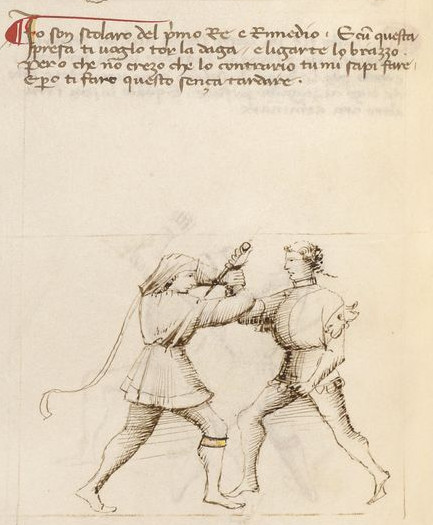 Io son scolaro del p̃mo Re e Rimedio. E cũ questa
presa ti voglo tor la daga, e ligarte lo brazzo.
Pero che nō crezo che lo contrario tu mi sapi fare,
E po ti faro questo sença tardare.